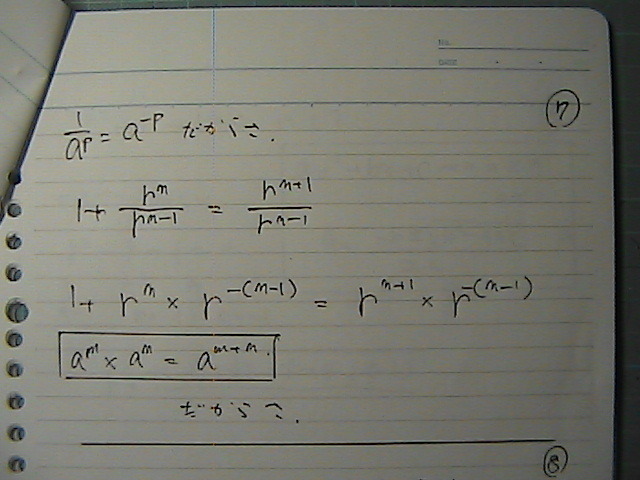 NO.
DATE
⑦
1/a^p = a^-p だからさ.
1 + r^n / r^n-1 = r^n+1 / r^n-1
1 + r^n × r^-(n-1) = r^n+1 × r^-(n-1)
a^m × a^n = a^m+n.
だからさ.
⑧